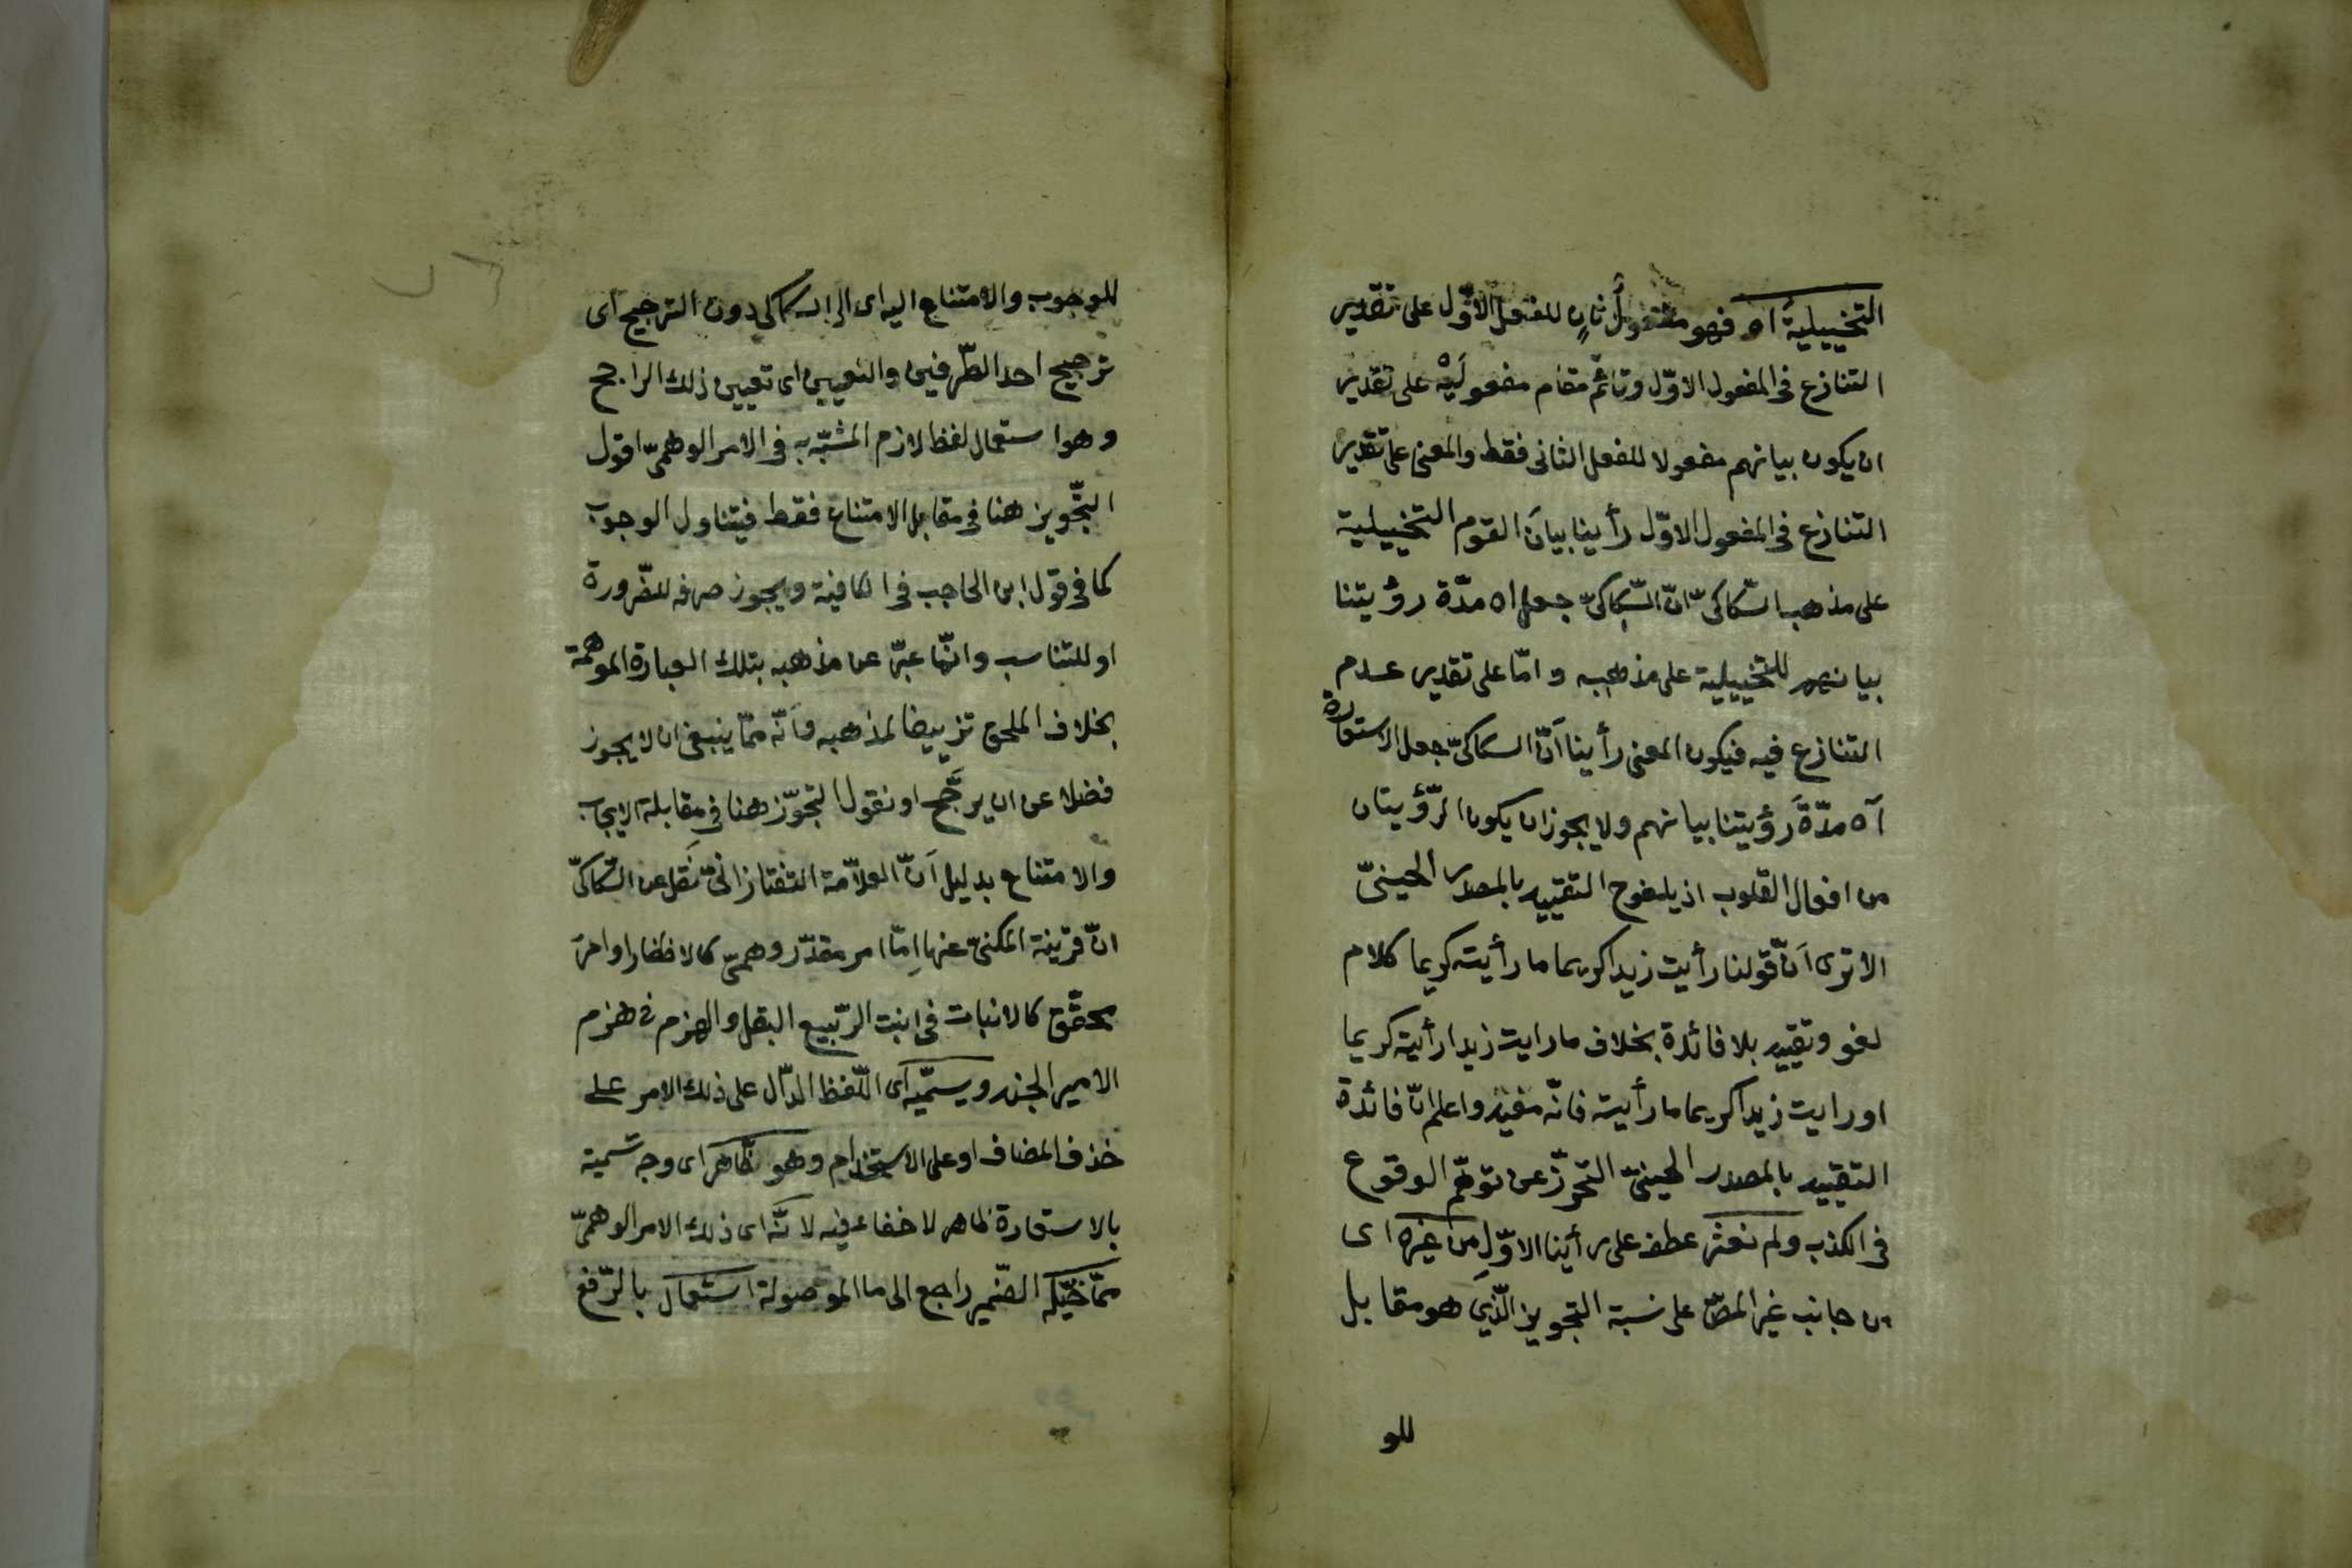 التخييلية اه فهو مفعولٌ ثانٍ للفعل الاوّل على تقدير
التنازع فى المفعول الاوّل وقائم مقام مفعولَيْه على تقدير
ان يكون بيانهم مفعولا للفعل الثانى فقط والمعنى على تقدير
التنازع فى المفعول الاوّل رأينا بيانَ القوم التخييلية
على مذهب السّكاكىّ انّ السّكاكىّ جعل اه مدّة رؤيتنا
بيانهم للتخييلية على مذهبه وامّا على تقدير عدم
التنازع فيه فيكون المعنى رأينا اَنّ السكاكىّ جعل الاستعارة
آه مدّةَ رؤيتنا بيانهم ولا يجوز ان يكون الرّؤيتان
من افعال القلوب اذ يلغوح التقييد بالمصدر الحينىّ
الا ترى اَنّ قولنا رأيت زيدا كريما ما رأيت كريما كلام
لغو وتقييد بلا فائدة بخلاف ما رايت زيدا رأيت كريما
او رايت زيدا كريما ما رأيته فانّه مفيد واعلم انّ فائدة
التقييد بالمصدر الحينىّ التحرّز عن توهّم الوقوع
فى الكذب ولم نعثر عطف على رأينا الاوّل من غيره اى
من جانب غير المصّ على نسبة التجويز الّذى هو مقابل
للو
للوجوب والامتناع اليه اى الى السكاكى دون الترجيح اى
ترجيح احد الطّرفين والتعيين اى تعيين ذلك الراجح
وهو استعمال لفظ لازم المشبّه به فى الامر الوهمىّ اقول
التّجويز هنا فى مقابل الامتناع فقط فيتناول الوجوب
كما فى قول ابن الحاجب فى الكافية ويجوز صرفه للضّرورة
او للتناسب وانّما عبّر عن مذهبه بتلك العبارة الموهمة
بخلاف الملحوع تزييفا لمذهبه فانّه ممّا ينبغى ان لا يجوز
فضلا عن ان يرجَّح او نقول التجوّز هنا فى مقابلة الايجاب
والامتناع بدليل اَنّ العلاّمة التفتازانىّ نَقل عن السّكاكىّ
انّ قرينة المكنىّ عنها اِمّا امر مقدّر وهمىّ كالاظفار او امر
محقّق كالانبات فى انبت الرّبيع البقل والهزم فى هزم
الامير الجند ويسمّيه اى اللّفظ الدّال على ذلك الامر على
حذف المضاف او على الاستخدام وهو ظاهر اى وجه تسمية
بالاستعارة ظاهر لا خفاء فيه لانّه اى ذلك الامر الوهمىّ
ممّا خيّله الضّمير راجع الى ما الموصولة استعمال بالرّفع